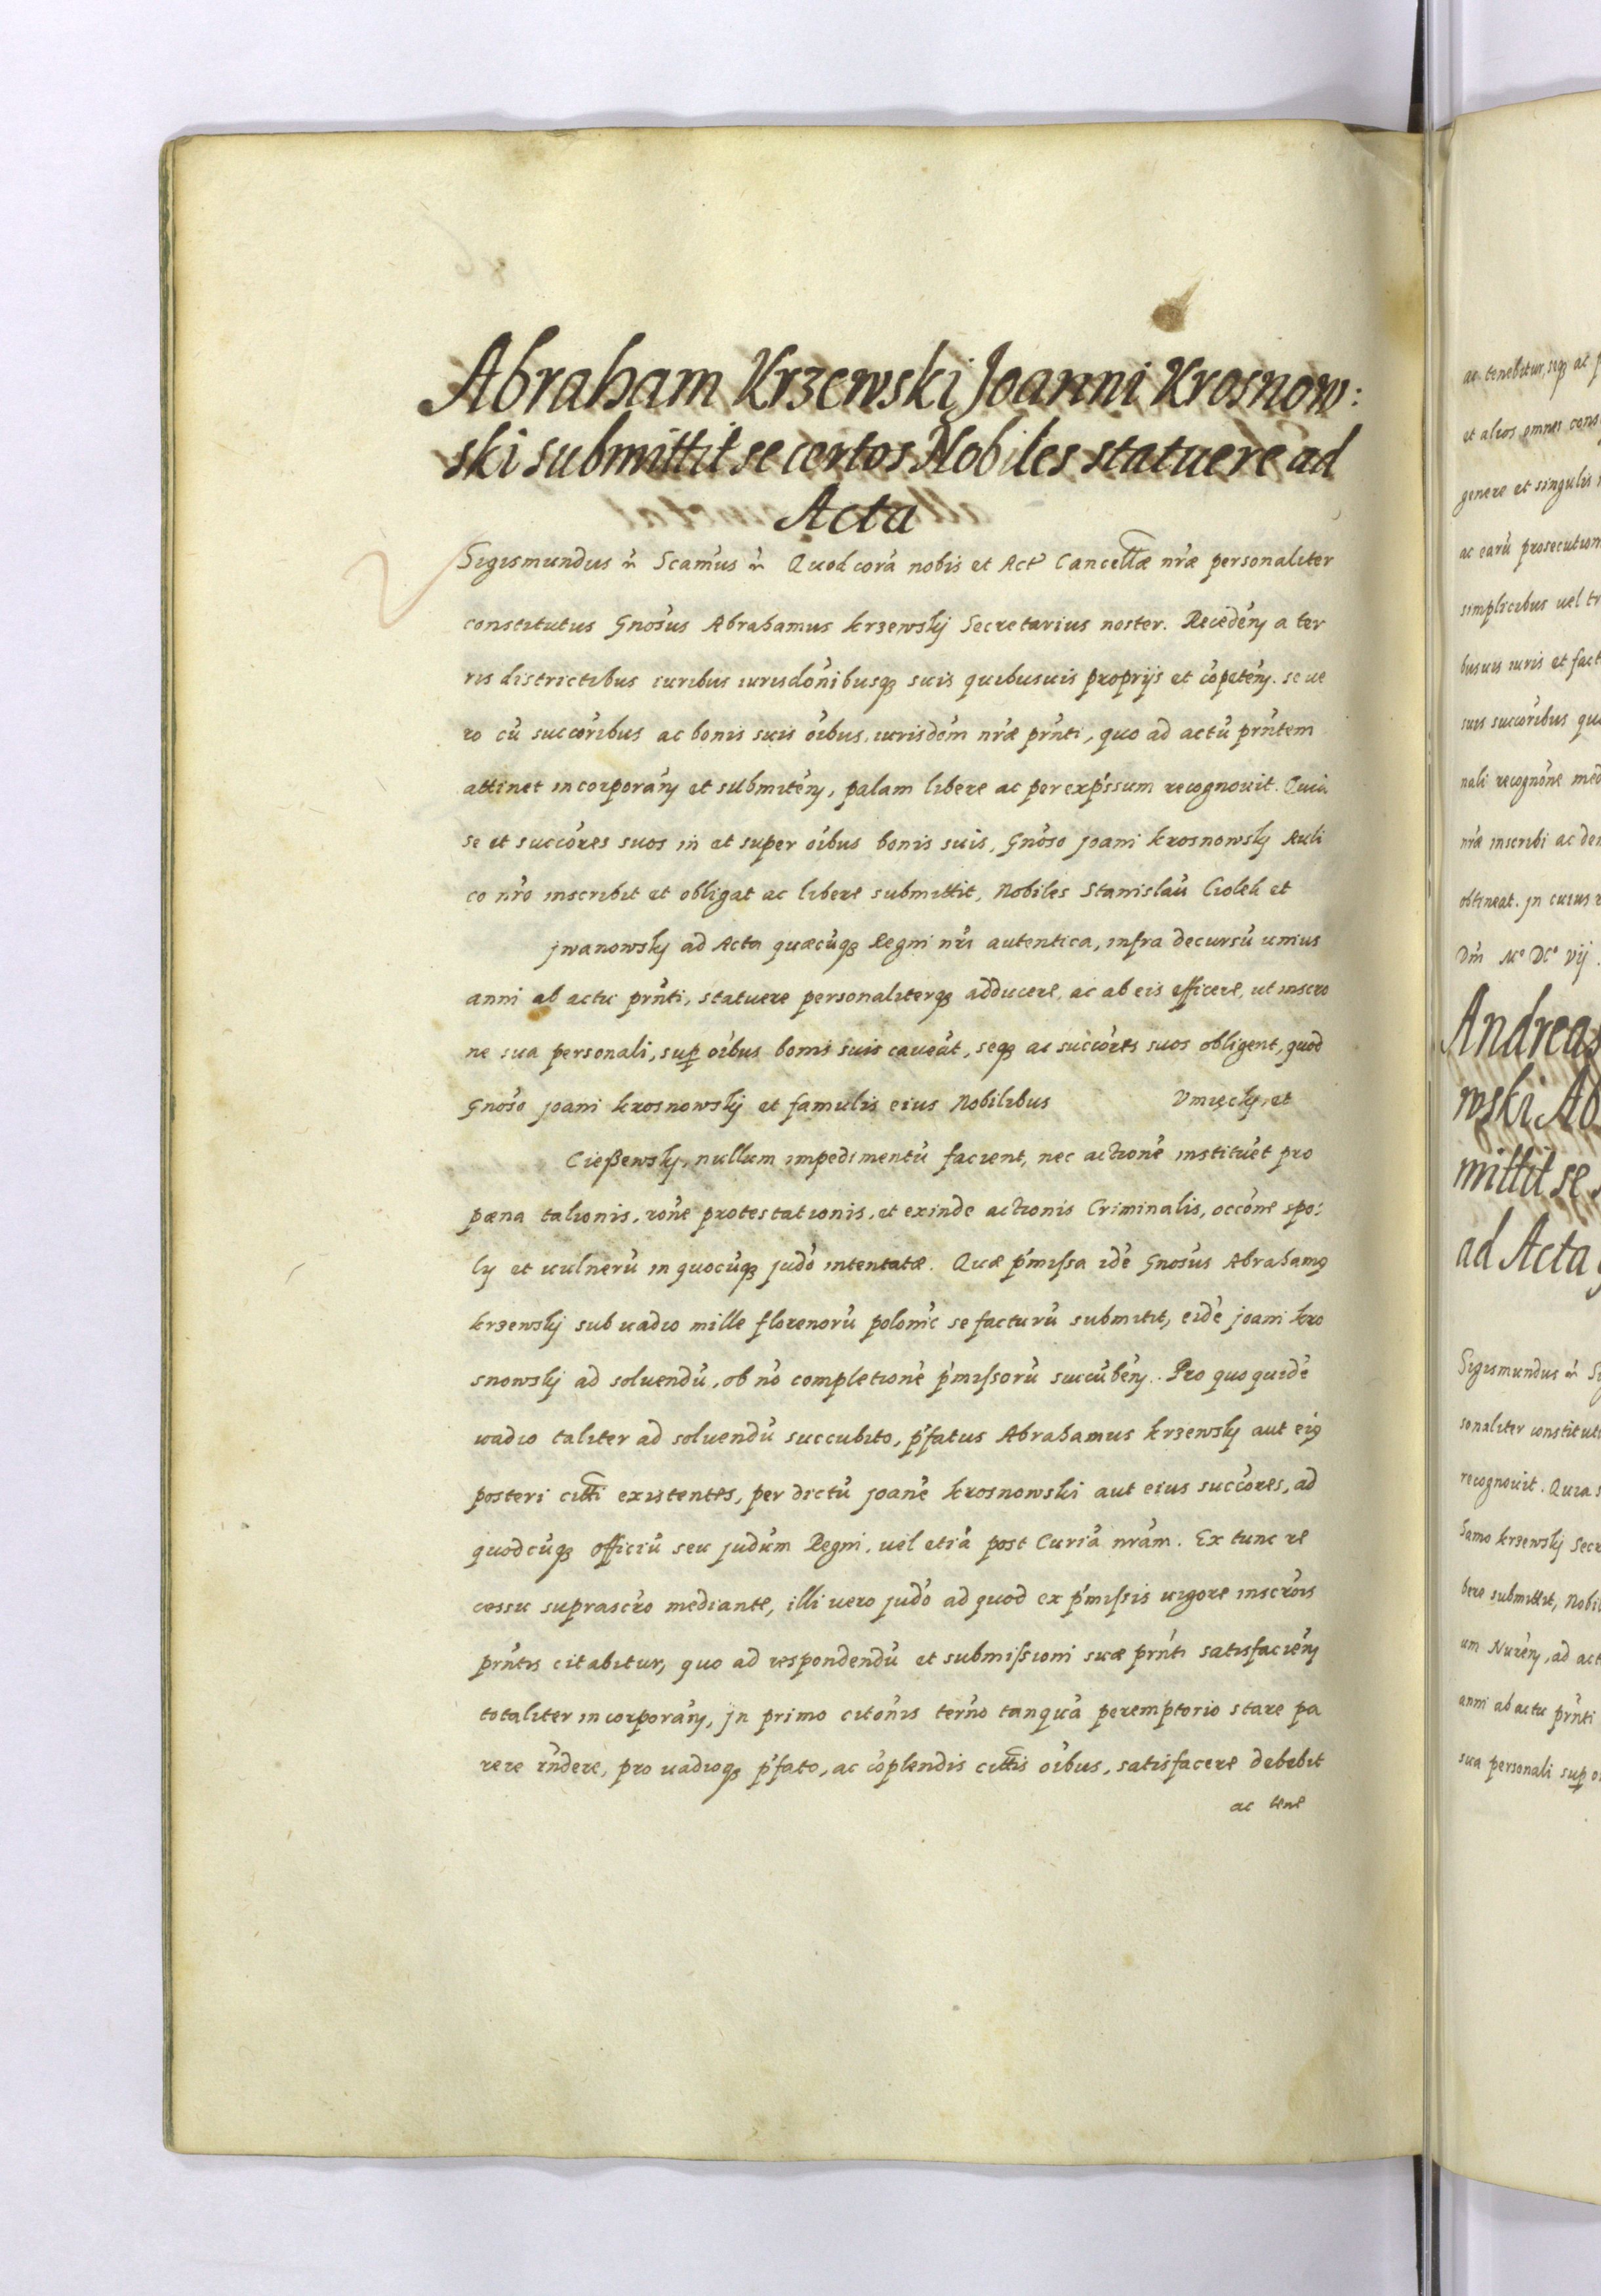 Abraham Krzewski Joanni Krosnow:
ski submittit se certos Nobiles statuere ad
Acta
Sigismundus etc Scamus etc Quod corā nobis et Act Cancellæ nræ personaliter
constitutus Gnosus Abrahamus Krzewskij Secretarius noster. Recedeñ a ter
ris districtibus iuribus iurisdonibusq; suis quibusuis proprijs et cōpeteñ. se ue
ro cū succoribus ac bonis suis oībus, iurisdom nræ prnti, quo ad actū prntem
attinet incorporañ et submiteñ, palam libere ac per exp̄ssum recognouit. Quia
se et succores suos in et super oībus bonis suis, Gnoso Joani Krosnowskij Auli
co nro inscribit et obligat ac libere submittit, Nobiles Stanislaū Ciolek et
Jwanowskij ad Acta quæcūq; Regni nri autentica, infra decursū unius
anni ab actu prnti, statuere personaliterq; adducere, ac ab eis efficere, ut inscro
ne sua personali, sup oībus bonis suis caueāt, seq; ac succores suos obligent, quod
Gnoso Joani Krosnowskij et famulis eius Nobilibus Vmięckij et
Cießewskij, nullum impedimentū facient, nec actionē instituēt pro
pæna talionis, rone protestationis, et exinde actionis Criminalis, occōne spo:
lij et uulnerū in quocūq; judo intentatæ. Quæ p̄missa idē Gnosus Abrahamq
Krzewskij sub uadio mille florenorū polonic se facturū submitit, eidē Joani Kro
snowskij ad soluendū, ob nō completionē p̄missorū succūbeñ. Pro quo quidē
uadio taliter ad soluendū succubito, p̄fatus Abrahamus Krzewskij aut eiq
posteri citti existentes, per dictū Joanē Krosnowski aut eius succores, ad
quodcūq; officiū seu judum Regni, uel etiā post Curiā nram. Ex tunc re
cessu suprascro mediante, illi uero judo ad quod ex p̄missis uigore inscrois
prntis citabitur, quo ad respondendū et submissioni suæ prnti satisfacieñ
totaliter incorporañ, jn primo citonis terno tanquā peremptorio stare pa
rere rndere, pro uadioq; p̄fato, ac cōplendis cittis oībus, satisfacere debebit
ac tene
ac tenebitur, seq; ac
et alios omnes
genere et singulis
ac earū prosecution
simplicibus uel
busuis iuris et fact
suis succoribus
nali recognone med
nræ inscribi ac
obtineat. Jn cuius
Dm M° DC° vij
Andreas
wski Ab
mittit se
ad Acta
Sigismundus etc
sonaliter constitut
recognouit. Quia
hamo Krzewskij Secr
bere submittit, Nobil
um Nureñ, ad act
anni ab actu prnti
sua personali sup